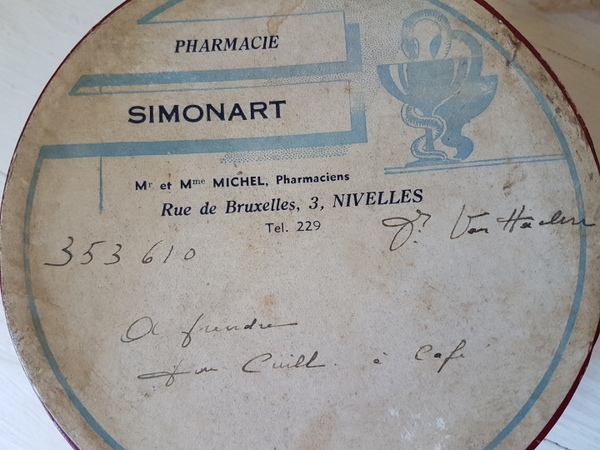 PHARMACIE
SIMONART
Mr et Mme MICHEL, Pharmaciens
Rue de Bruxelles, 3, NIVELLES
Tel. 229
Dr Van Haelen
353 610
A prendre
par Cuill. à Café